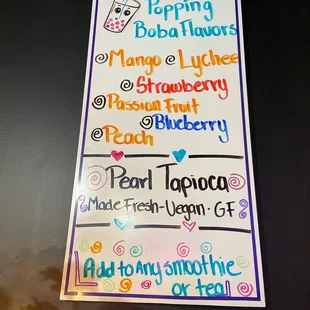 Popping
Boba Flavors
Mango Lychee
Strawberry
Passion Fruit
Blueberry
Peach
Pearl Tapioca
Made Fresh-Vegan·GF
Add to Any smoothie
or tea!